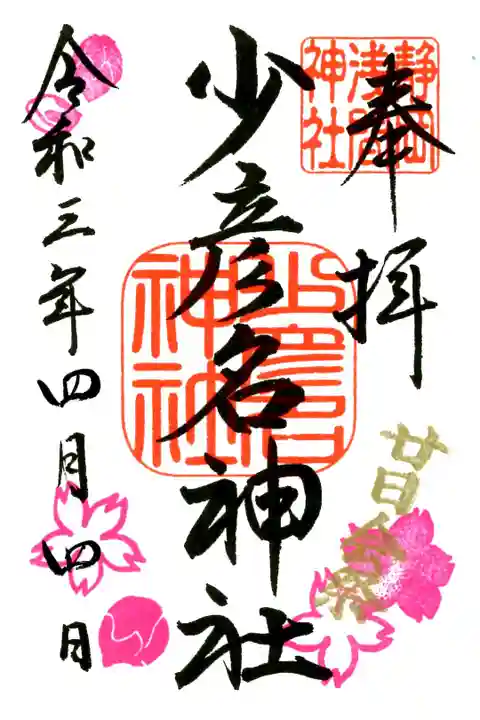 奉拝
静岡
浅間
神社
少彦名神社
少彦名
神社
廿日会祭
令和三年四月四日